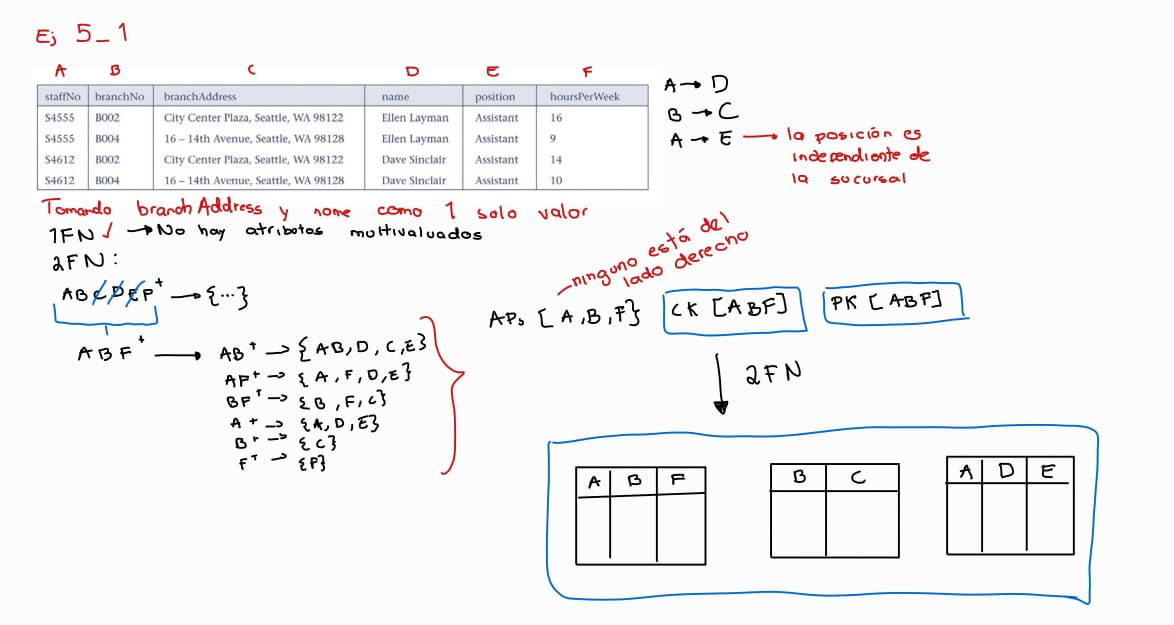 Ej 5_1
A B C D E F
staffNo branchNo branchAddress name position hoursPerWeek
S4555 B002 City Center Plaza, Seattle, WA 98122 Ellen Layman Assistant 16
S4555 B004 16 – 14th Avenue, Seattle, WA 98128 Ellen Layman Assistant 9
S4612 B002 City Center Plaza, Seattle, WA 98122 Dave Sinclair Assistant 14
S4612 B004 16 – 14th Avenue, Seattle, WA 98128 Dave Sinclair Assistant 10
A → D
B → C
A → E → la posición es
independiente de
la sucursal
Tomando branch Address y nome como 1 solo valor
1FN ✓ → No hay atributos multivaluados
2FN:
ABCDEF⁺ → {...}
ABF⁺ → AB⁺ → {AB,D,C,E}
AF⁺ → {A,F,D,E}
BF⁺ → {B,F,C}
A⁺ → {A,D,E}
B⁺ → {C}
F⁺ → {F}
ninguno está del
lado derecho
APs [A,B,F} CK [ABF] PK [ABF]
2FN
A B F
B C
A D E